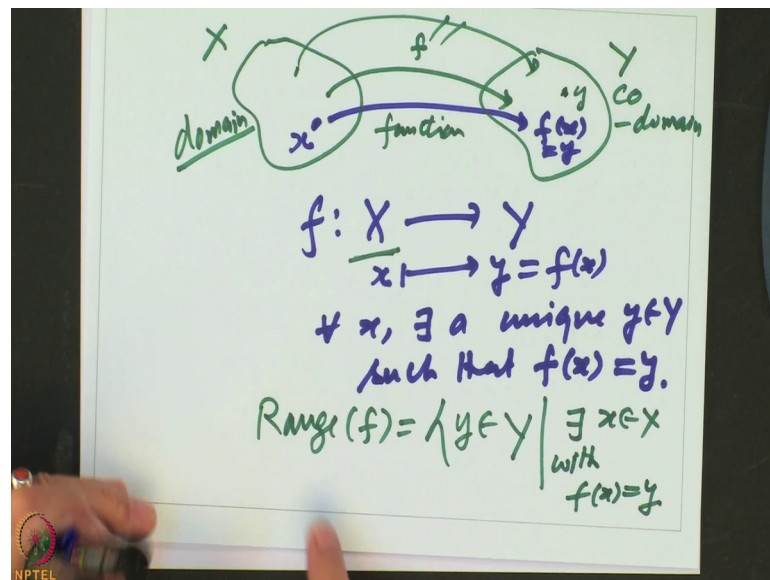 X f Y
domain x function · y co
f(x) -domain
= y
f: X → Y
x ↦ y = f(x)
∀ x, ∃ a unique y ∈ Y
such that f(x) = y.
Range(f) = { y ∈ Y | ∃ x ∈ X
with
f(x) = y
NPTEL